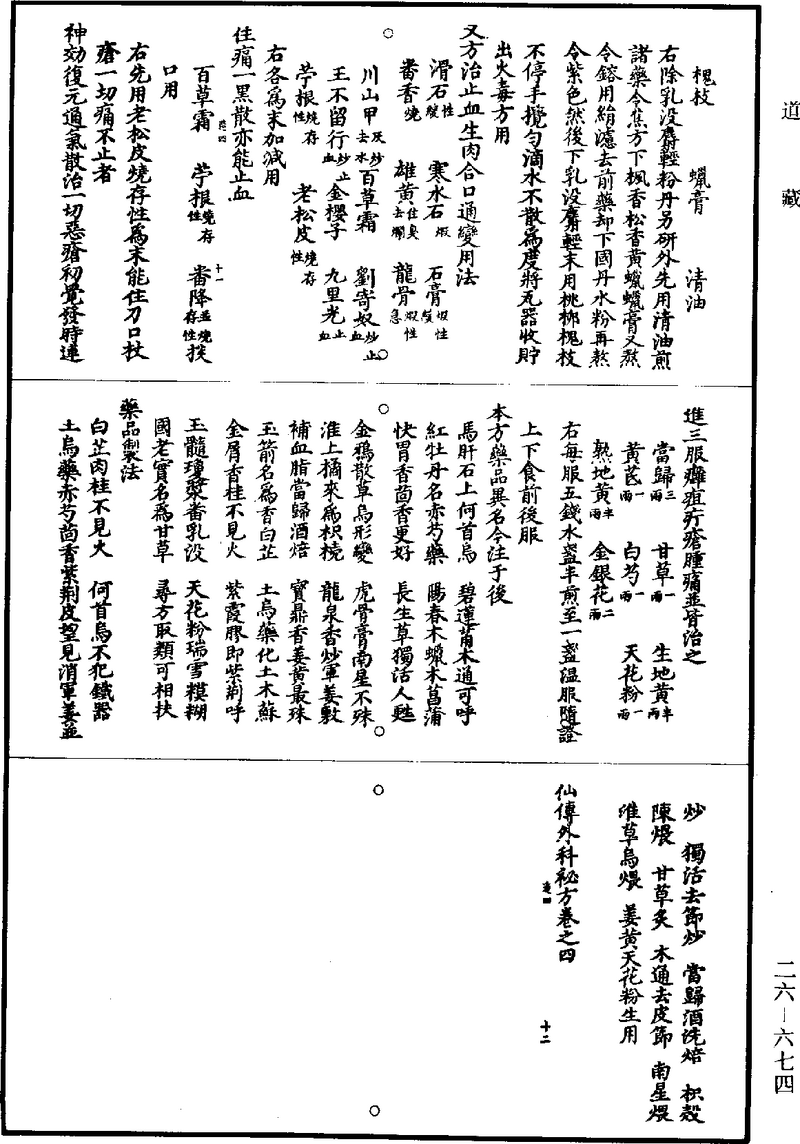 道藏
槐枝　蠟膏　清油
右除乳沒麝輕粉丹另研外先用清油煎
諸藥令焦方下楓香松香黃蠟蠟膏又熬
令鎔用絹濾去前藥却下國丹水粉再熬
令紫色然後下乳沒麝輕末用桃柳槐枝
不停手攪勻滴水不散爲度將瓦器收貯
出火毒方用
又方治止血生肉合口通變用法
滑石煅性　寒水石煅　石膏煅性
番香燒　雄黃去　龍骨煅性急
川山甲及炒去水　百草霜　劉寄奴炒止
王不留行炒止血　金櫻子　九里光止血
苧根燒存性　老松皮燒存性
右各爲末加減用
住痛一黑散亦能止血
百草霜　苧根燒存　番降並燒存性　挨
口用
右先用老松皮燒存性爲末能住刀口杖
瘡一切痛不止者
神効復元通氣散治一切惡瘡初覺發時連
十一
進三服癰疽疔瘡腫痛並皆治之
當歸三兩　甘草一兩　生地黃半兩
黃芪一兩　白芍一兩　天花粉一兩
熟地黃半兩　金銀花二兩
右每服五錢水盞半煎至一盞溫服隨證
上下食前後服
本方藥品異名今注于後
馬肝石上何首烏　碧蓮䈥木通可呼
紅牡丹名赤芍藥　陽春木蠟木菖蒲
快胃香茴香更好　長生草獨活人甦
金鴉散草烏形變　虎骨膏南星不殊
淮上摘來爲枳梡　龍泉香炒軍姜敷
補血脂當歸酒焙　寳鼎香姜黃最殊
玉箭名爲香白芷　土烏藥化土木蘇
金屑香桂不見火　紫霞膠即紫荊呼
玉髓瓊漿番乳沒　天花粉瑞雪糢糊
國老實名爲甘草　尋方取類可相扶
藥品製法
白芷肉桂不見火　何首烏不犯鐵器
土烏藥赤芍茴香紫荊皮望見消軍姜並
炒　獨活去節炒　當歸酒洗焙　枳殼
陳煨　甘草炙　木通去皮節　南星煨
淮草烏煨　姜黃天花粉生用
仙傳外科祕方卷之四
十二
二六—六七四